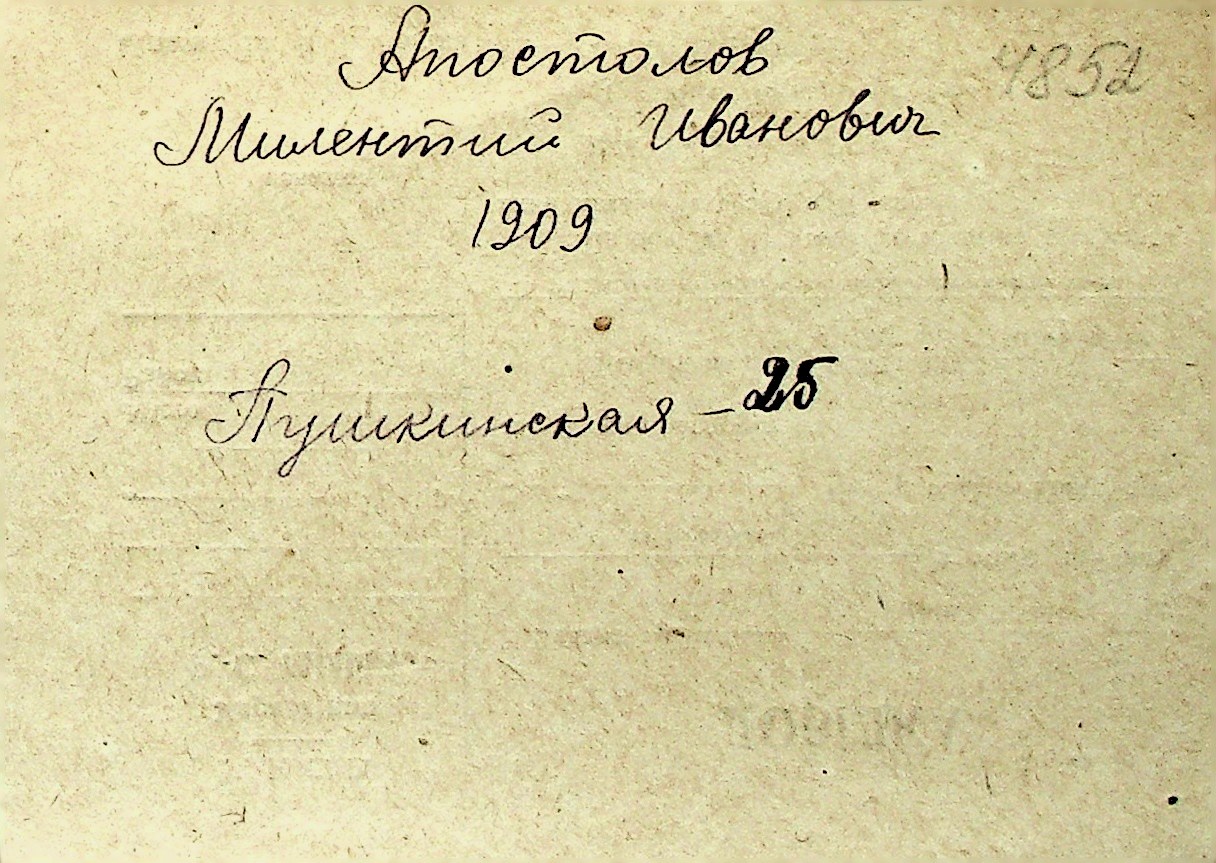 Апостолов 4852
Милентий Иванович
1909
Пушкинская - 25